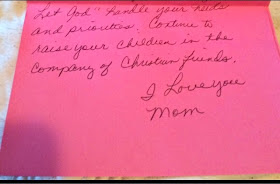 Let God" handle your
and priorities. Continue to
raise your children in the
company of Christian friends.
I Love you
Mom